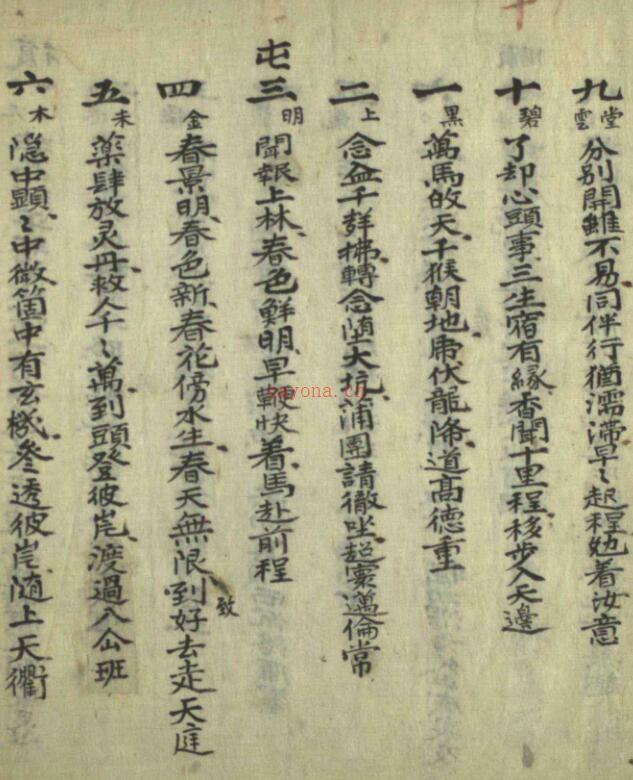 九 雲堂 分別開雖不易同伴行猶濡滯早〻起程勉着汝意
十 碧 了却心頭事三生宿有緣香聞十里程移步入天邊
一 黑 萬馬的天千猴朝地虎伏龍降道高德重
二 上 念無千群拂轉念墮大坑蒲團請徹坐超寰邁倫常
屯三 明 聞報上林春色鮮明早鞭快着馬赴前程
四 金 春景明春色新春花傍水生春天無限到好去走天庭 致
五 未 藥肆放灵丹救人千〻萬到頭登彼岸渡過八仙班
六 木 隠中顕〻中微箇中有玄機叅透彼岸随上天衢
kayona.cn